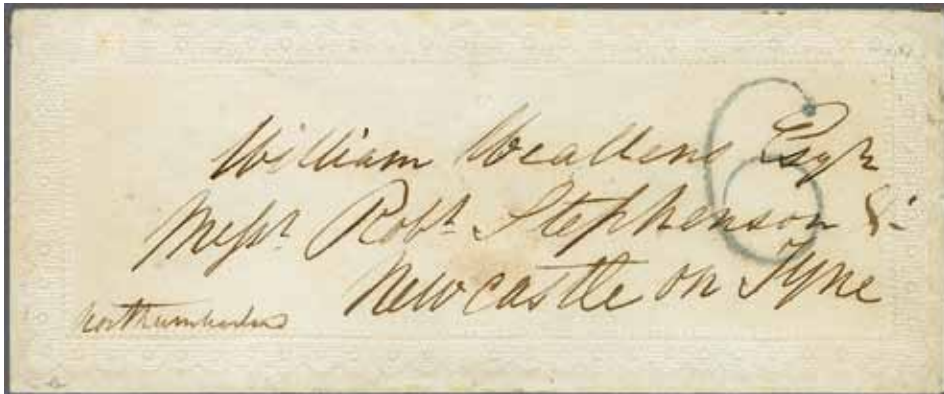 William Weallens Esqr
Messrs Robt Stephenson &
Newcastle on Tyne
Northumberland
6